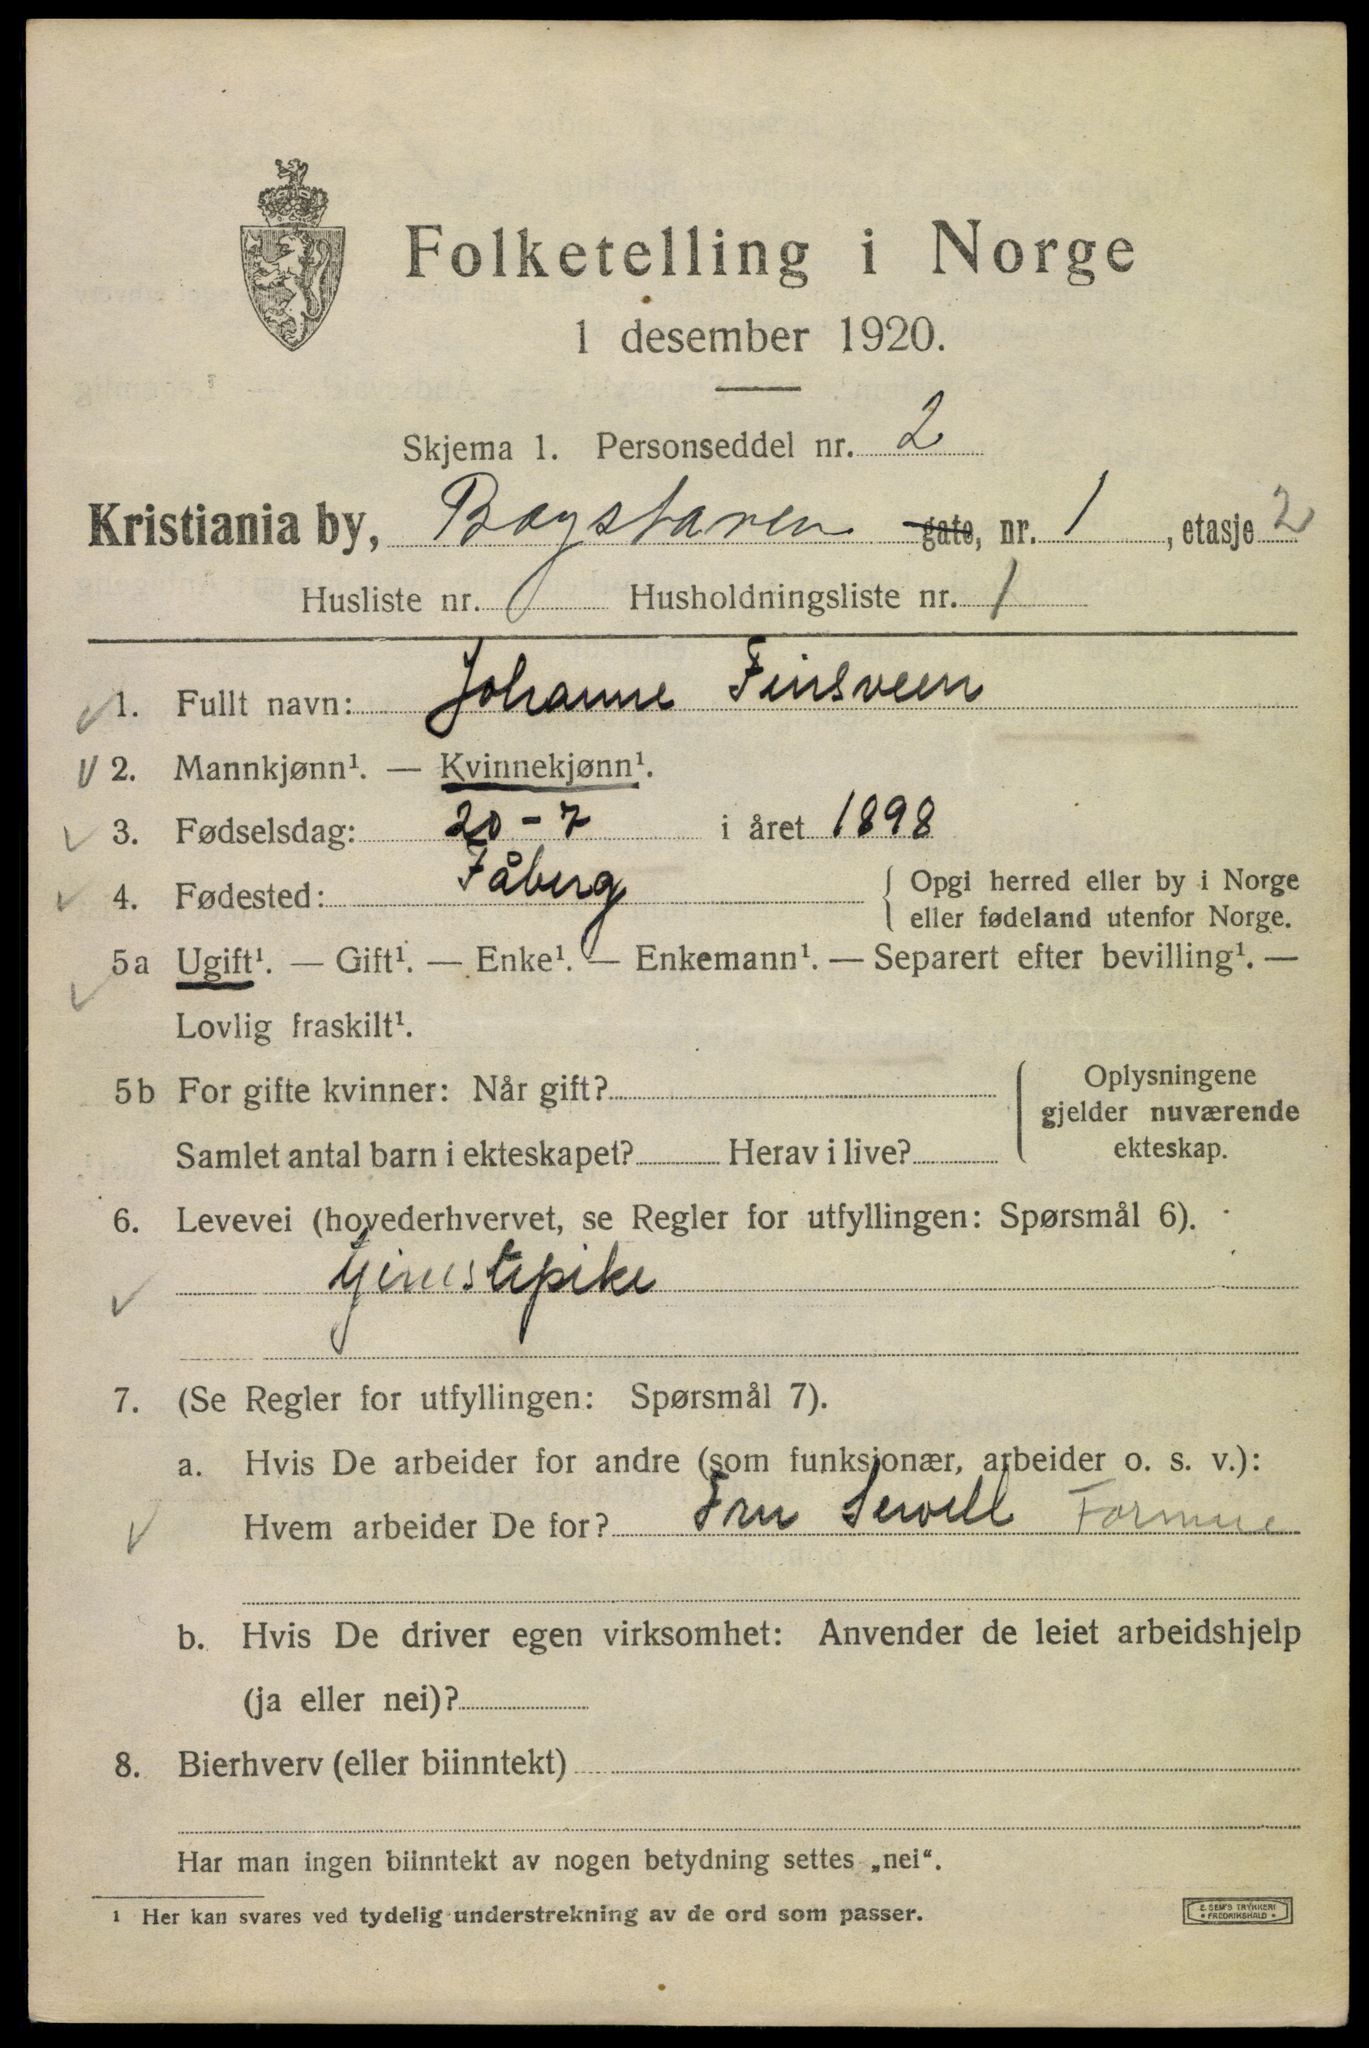 Folketelling i Norge
1 desember 1920.
Skjema 1. Personseddel nr. 2
Kristiania by, Bogstaven gate, nr. 1, etasje 2
Husliste nr. Husholdningsliste nr. 1
1. Fullt navn: Johanne Finsveen
2. Mannkjønn¹. — Kvinnekjønn¹.
3. Fødselsdag: 20-7 i året 1898
4. Fødested: Fåberg { Opgi herred eller by i Norge
eller fødeland utenfor Norge.
5a Ugift¹. — Gift¹. — Enke¹. — Enkemann¹. — Separert efter bevilling¹. —
Lovlig fraskilt¹.
5b For gifte kvinner: Når gift? { Oplysningene
gjelder nuværende
Samlet antal barn i ekteskapet? Herav i live? ekteskap.
6. Levevei (hovederhvervet, se Regler for utfyllingen: Spørsmål 6).
tjenestepike
7. (Se Regler for utfyllingen: Spørsmål 7).
a. Hvis De arbeider for andre (som funksjonær, arbeider o. s. v.):
Hvem arbeider De for? Fru Sewell Formue
b. Hvis De driver egen virksomhet: Anvender de leiet arbeidshjelp
(ja eller nei)?
8. Bierhverv (eller biinntekt)
Har man ingen biinntekt av nogen betydning settes „nei“.
¹ Her kan svares ved tydelig understrekning av de ord som passer.
E. SEM'S TRYKKERI
• FREDRIKSHALD •